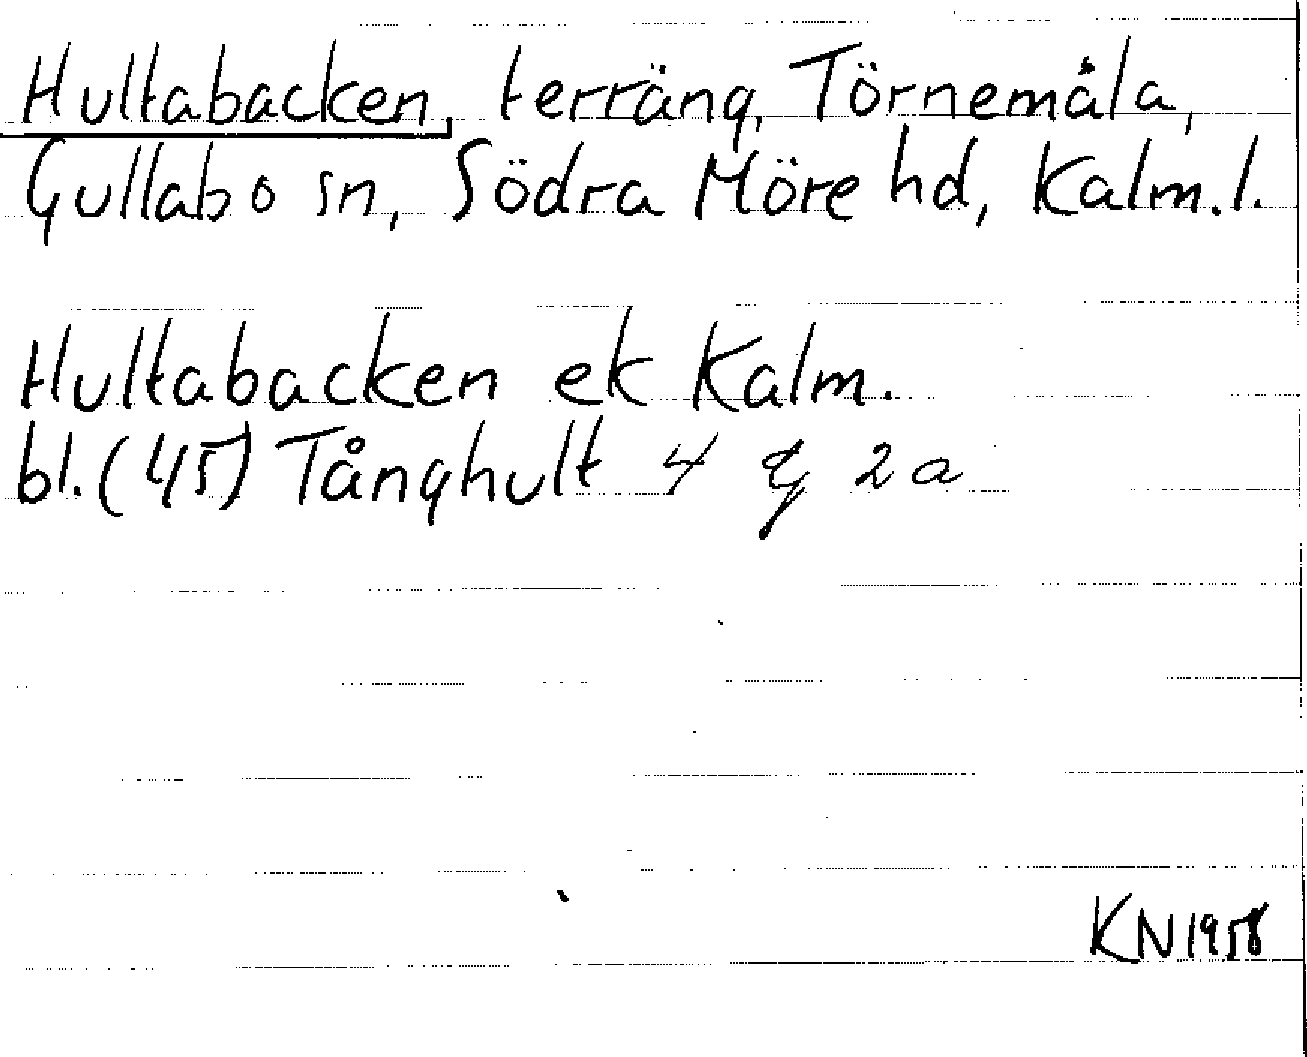 Hultabacken, terräng, Törnemåla,
Gullabo sn, Södra Möre hd, Kalm.l.
Hultabacken ek Kalm.
bl. (45) Tånghult 4 g 2a
KN 1958